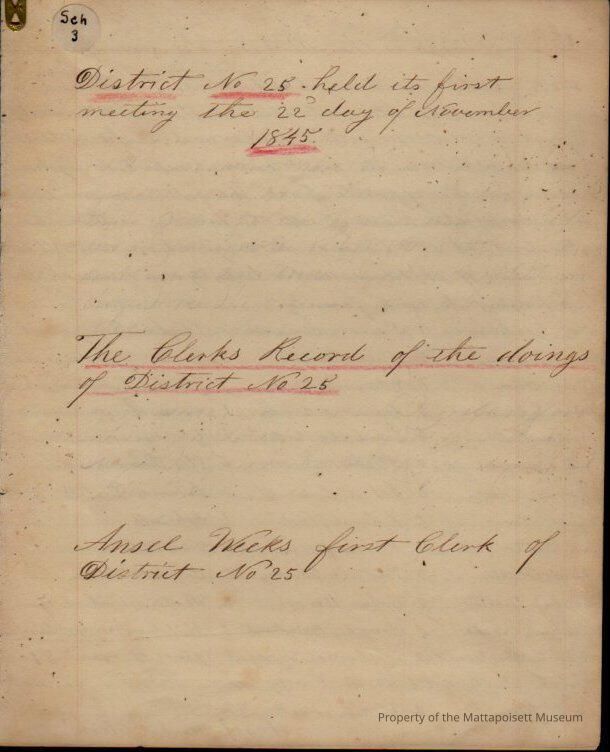 Sch
3
District No 25 held its first
meeting the 22d day of November
1845.
The Clerks Record of the doings
of District No 25
Ansel Weeks first Clerk of
District No 25
Property of the Mattapoisett Museum